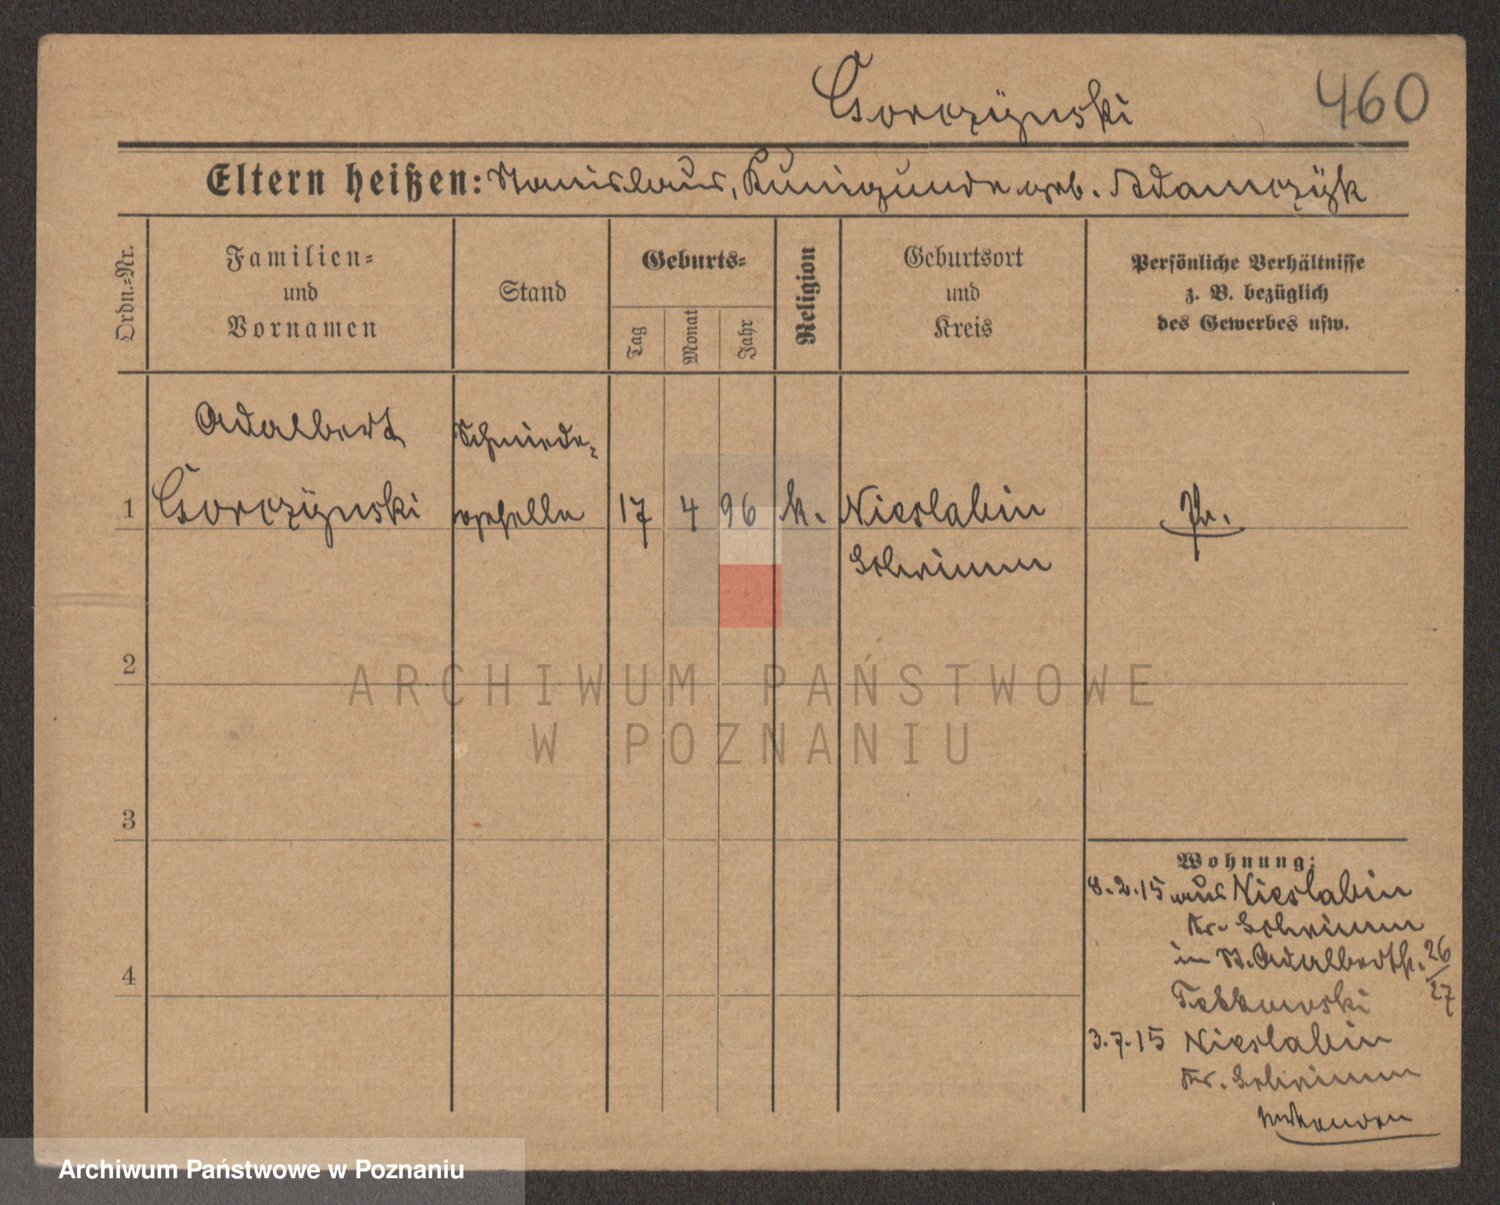 Gorczÿnski 460
Eltern heißen: Stanislaus, Kunigunde geb. Adamczÿk
Ordn.-Nr.
Familien-
und
Vornamen
Stand
Geburts-
Tag
Monat
Jahr
Religion
Geburtsort
und
Kreis
Persönliche Verhältnisse
z. B. bezüglich
des Gewerbes usw.
Adalbert Schmiede-
1 Gorczÿnski geselle 17 4 96 k. Nieslabin Pr.
Schrimm
2
ARCHIWUM PAŃSTWOWE
W POZNANIU
3
Wohnung:
8.2.15 aus Nieslabin
Kr. Schrimm
in St. Adalbertstr. 26/27
4
3.7.15 Nieslabin
Kr. Schrimm
Archiwum Państwowe w Poznaniu